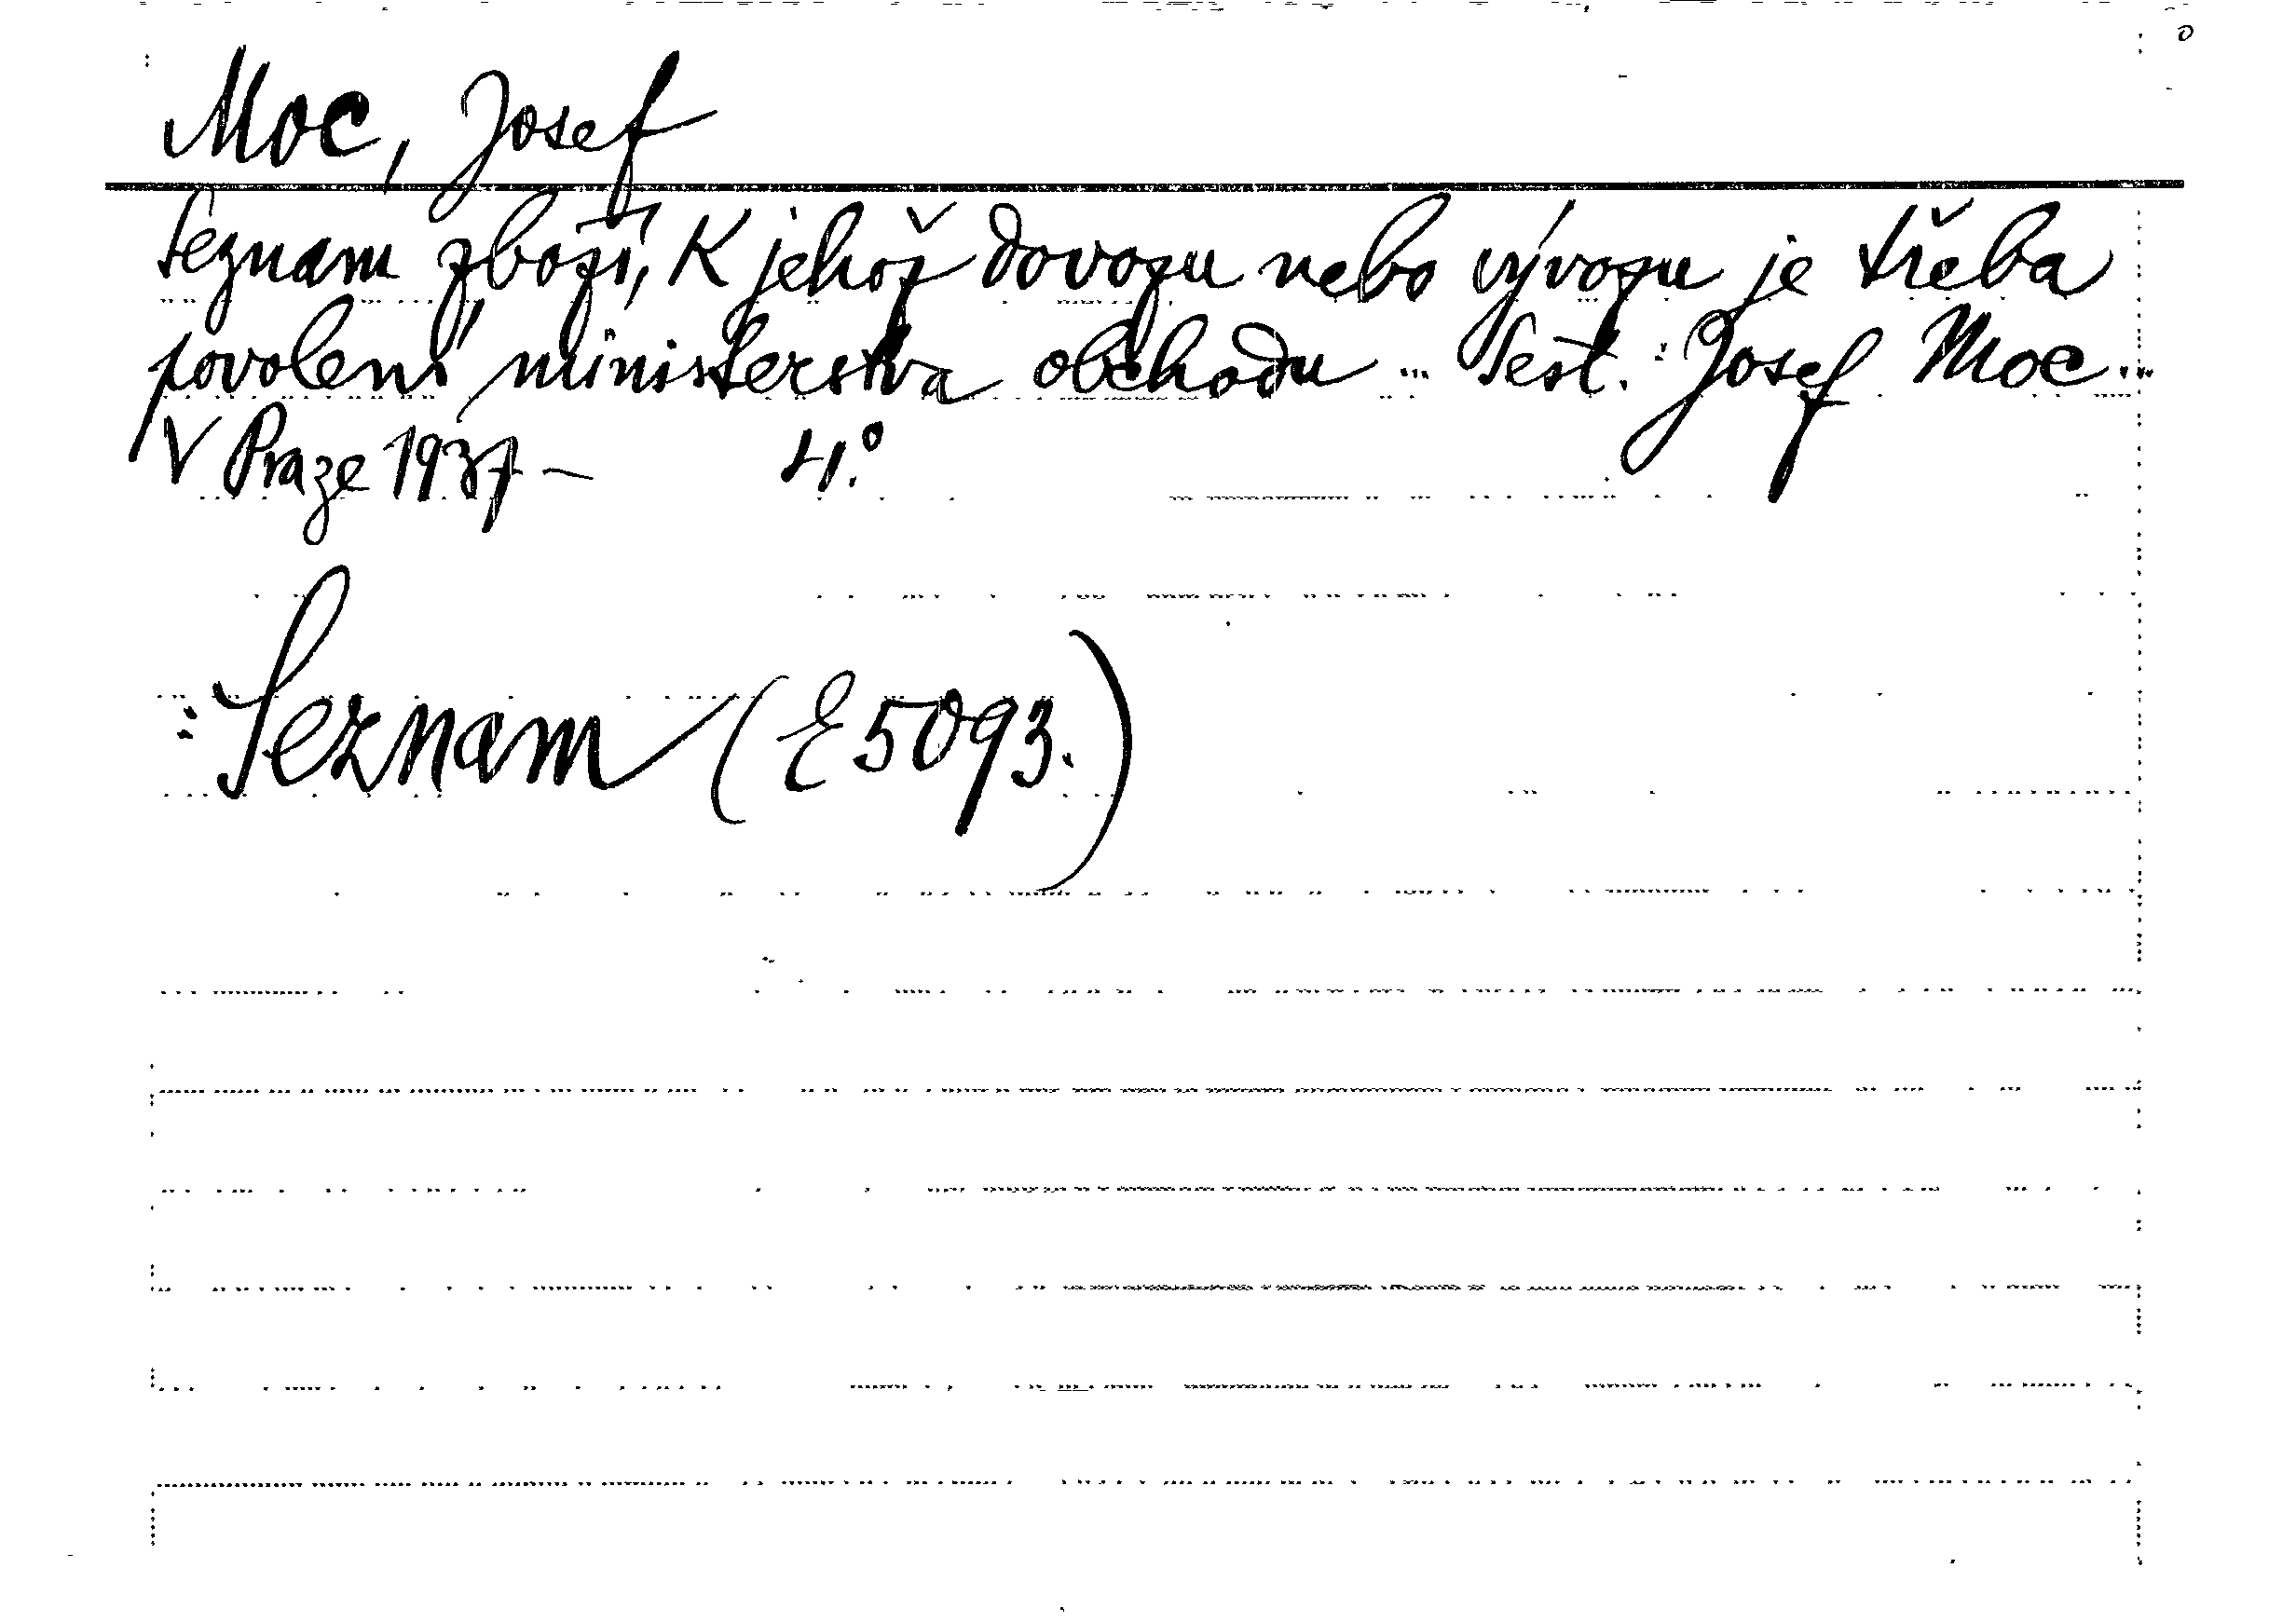 Moc, Josef
Seznam zboží, k jehož dovozu nebo vývozu je třeba
povolení ministerstva obchodu ... Sest.: Josef Moc...
V Praze 1937- 4.°
: Seznam (E 5093.)